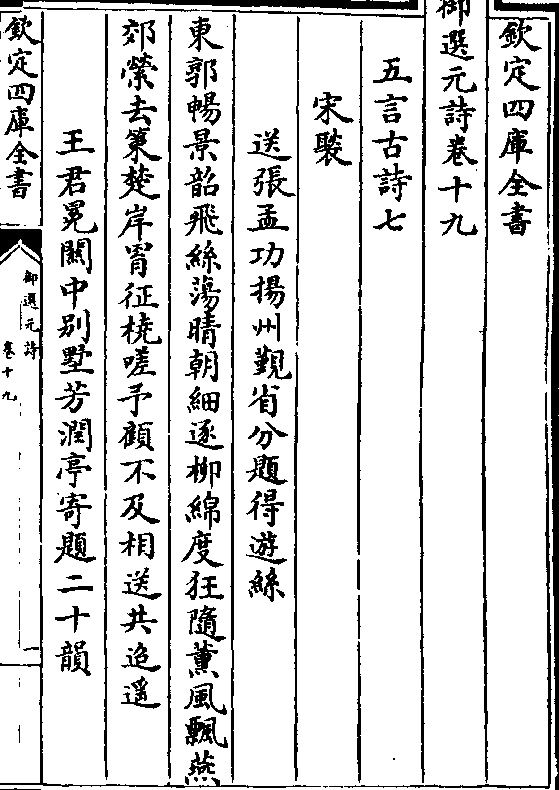 欽定四庫全書
御選元詩卷十九
五言古詩七
宋褧
送張孟功揚州覲省分題得遊絲
東郭暢景韶飛絲蕩晴朝細逐柳綿度狂隨薰風飄燕
郊縈去策楚岸罥征橈嗟予顧不及相送共迢遥
王君冕閿中別墅芳澗亭寄題二十韻
欽定四庫全書
御選元詩
卷十九
一